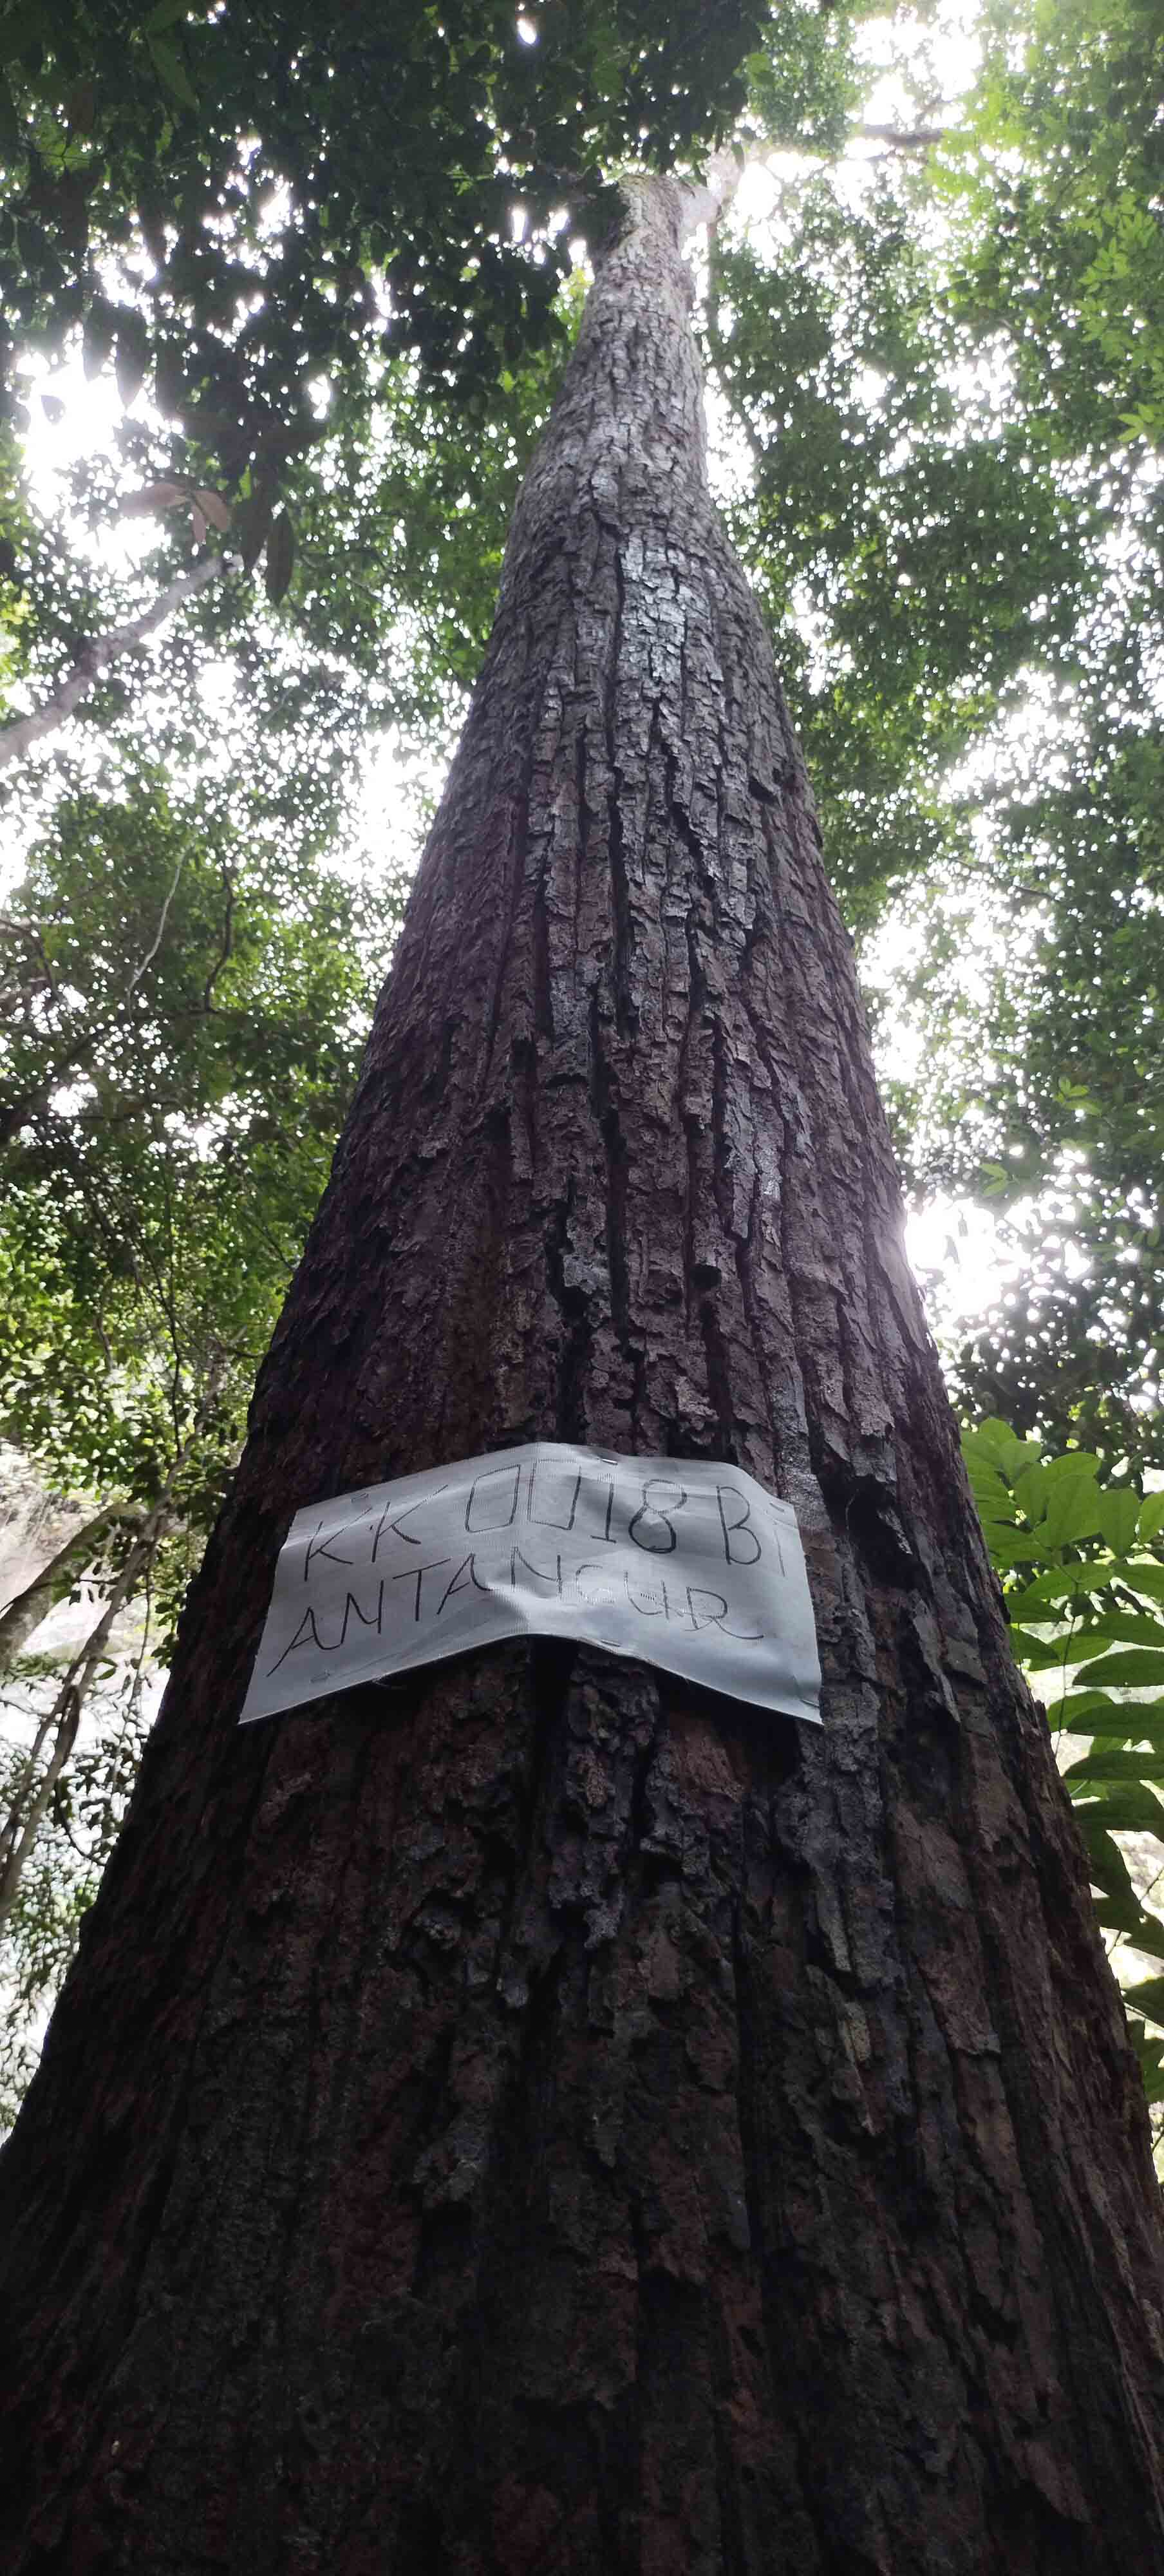 KK 0018 Bi
ANTANGUR